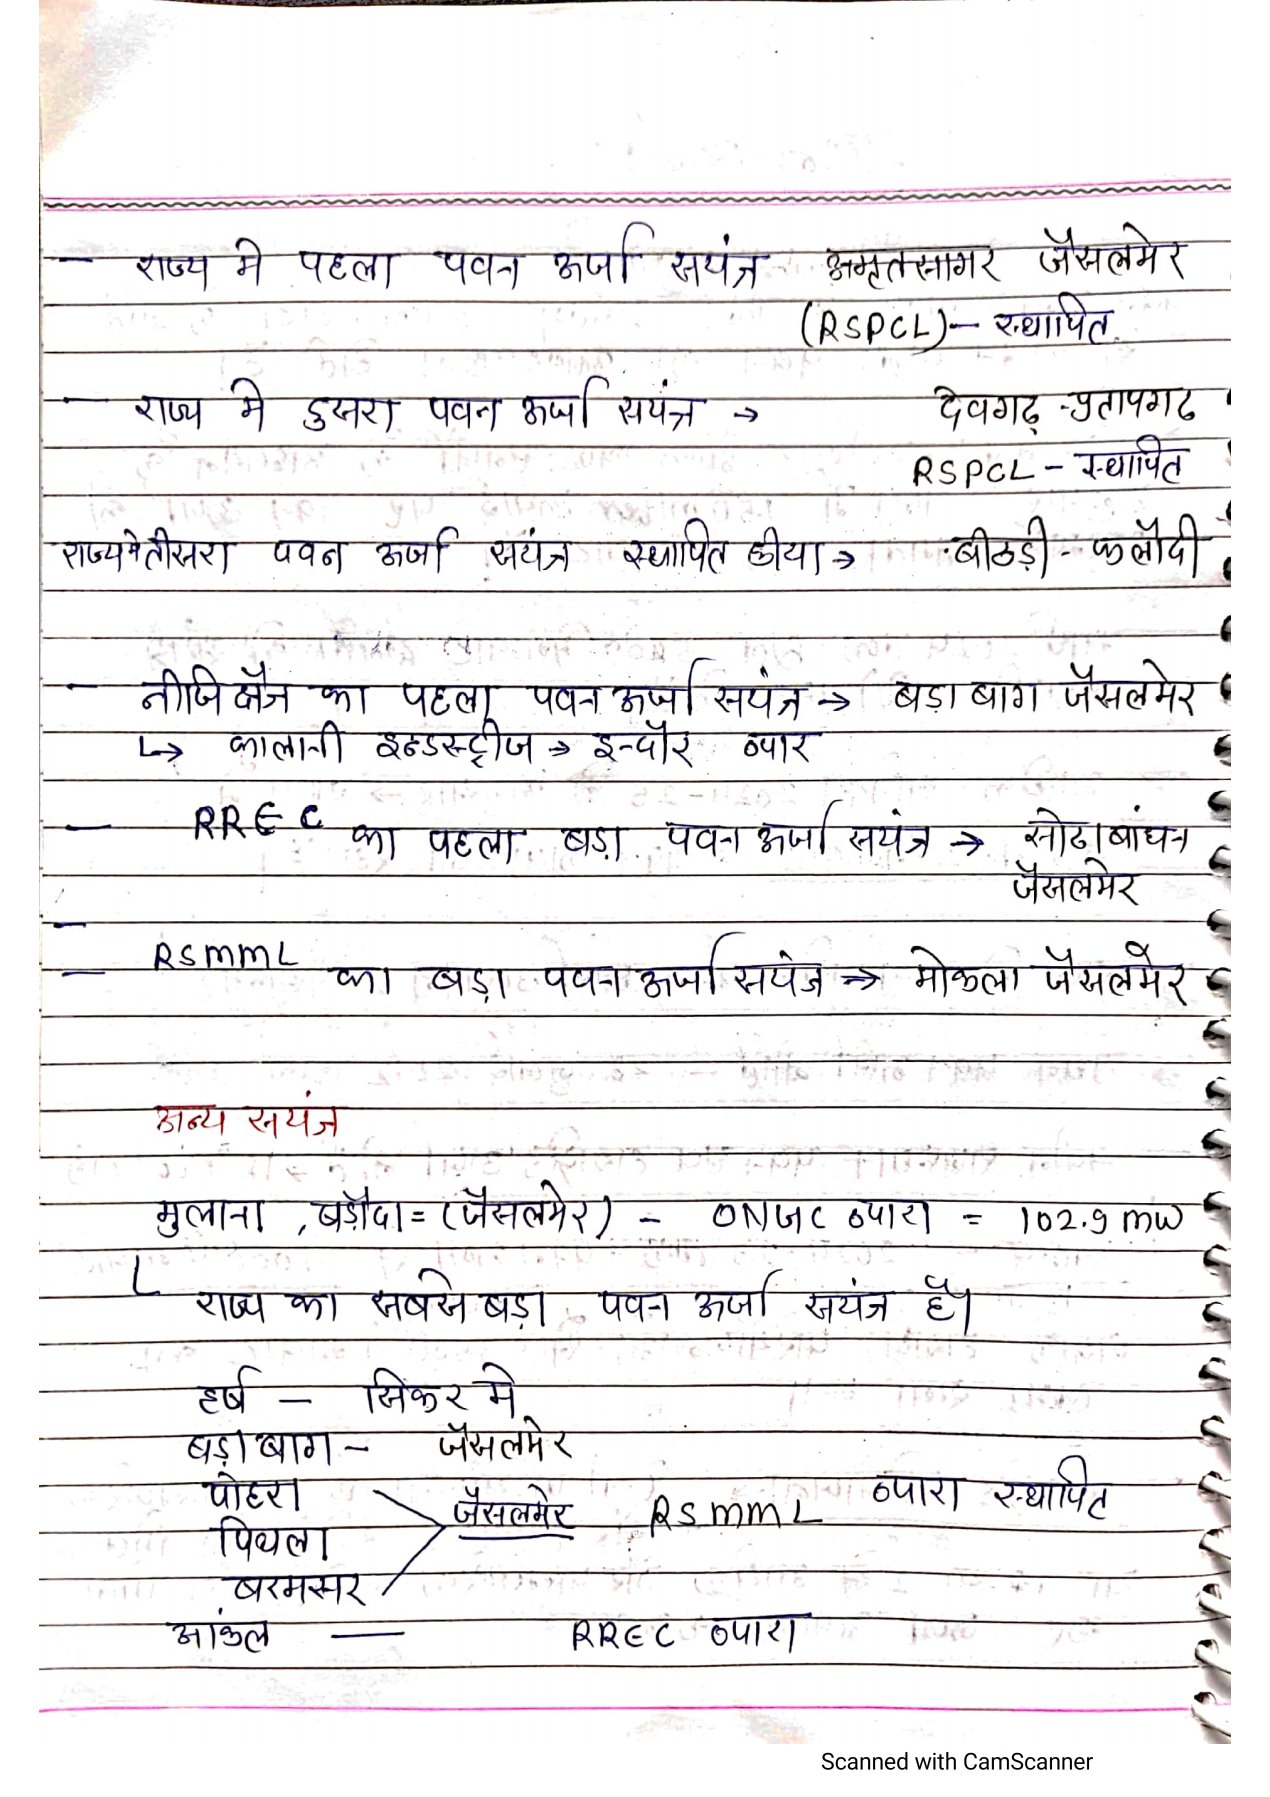 – राज्य मे पहला पवन ऊर्जा सयंत्र अमृतसागर जैसलमेर
(RSPCL) – स्थापित
– राज्य मे दुसरा पवन ऊर्जा सयंत्र → देवगढ़ - प्रतापगढ
RSPCL – स्थापित
राज्यमे तीसरा पवन ऊर्जा सयंत्र स्थापित कीया → बीठड़ी - फलौदी
– नीजि क्षैत्र का पहला पवन ऊर्जा सयंत्र → बड़ा बाग जैसलमेर
↳ कालानी इन्डस्ट्रीज → इन्दौर व्दार
– RREC का पहला बड़ा पवन ऊर्जा सयंत्र → सोढा बांधन
जैसलमेर
– RSMML का बड़ा पवन ऊर्जा सयंत्र → मोकला जैसलमेर
अन्य सयंत्र
मुलाना , बड़ौदा = (जैसलमेर) – ONGC व्दारा = 102.9 mw
राज्य का सबसे बड़ा पवन ऊर्जा सयंत्र है।
हर्ष – सिकर मे
बड़ा बाग – जैसलमेर
पोहरा
पिथला
बरमसर
जैसलमेर RSMML व्दारा स्थापित
आंकल — RREC व्दारा
Scanned with CamScanner